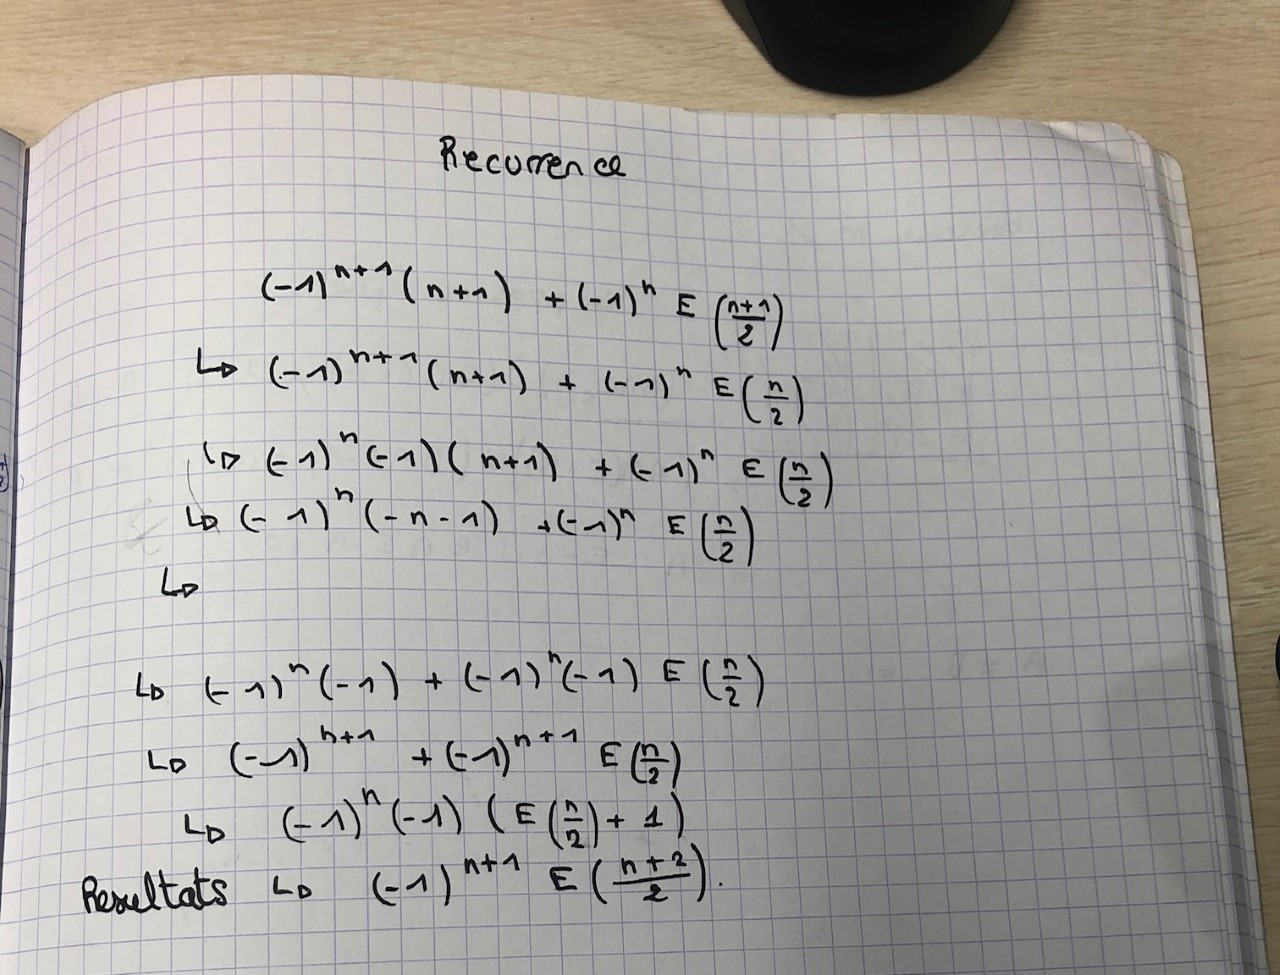 Recurrence
(-1)^{n+1} (n+1) + (-1)^n E (\frac{n+1}{2})
↳ (-1)^{n+1} (n+1) + (-1)^n E (\frac{n}{2})
↳ (-1)^n (-1) (n+1) + (-1)^n E (\frac{n}{2})
↳ (-1)^n (-n-1) + (-1)^n E (\frac{n}{2})
↳
↳ (-1)^n (-1) + (-1)^n (-1) E (\frac{n}{2})
↳ (-1)^{n+1} + (-1)^{n+1} E (\frac{n}{2})
↳ (-1)^n (-1) (E (\frac{n}{2}) + 1)
Resultats ↳ (-1)^{n+1} E (\frac{n+2}{2}).